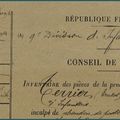 RÉPUBLIQUE F
9e Division d'Infa
CONSEIL DE
INVENTAIRE des pièces de la pro
Terrier,
d'Infanterie
inculpé de abandon de po